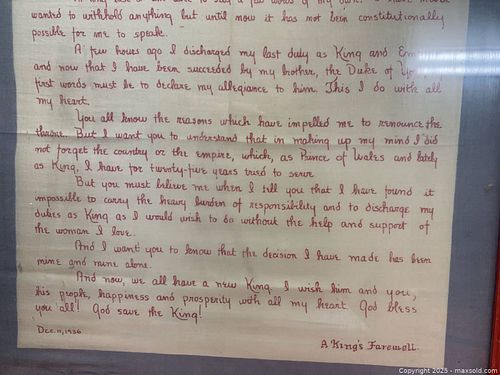 wanted to withhold anything but until now it has not been constitutionally
possible for me to speak.
A few hours ago I discharged my last duty as King and Em
and now that I have been succeeded by my brother, the Duke of Yo
first words must be to declare my allegiance to him. This I do with all
my heart.
You all know the reasons which have impelled me to renounce the
throne. But I want you to understand that in making up my mind I did
not forget the country or the empire, which, as Prince of Wales and lately
as King, I have for twenty-five years tried to serve
But you must believe me when I tell you that I have found it
impossible to carry the heavy burden of responsibility and to discharge my
duties as King as I would wish to do without the help and support of
the woman I love.
And I want you to know that the decision I have made has been
mine and mine alone.
And now, we all have a new King. I wish him and you,
his people, happiness and prosperity with all my heart. God bless
you all! God save the King!
Dec. 11, 1936
A King's Farewell
Copyright 2025 - maxsold.com